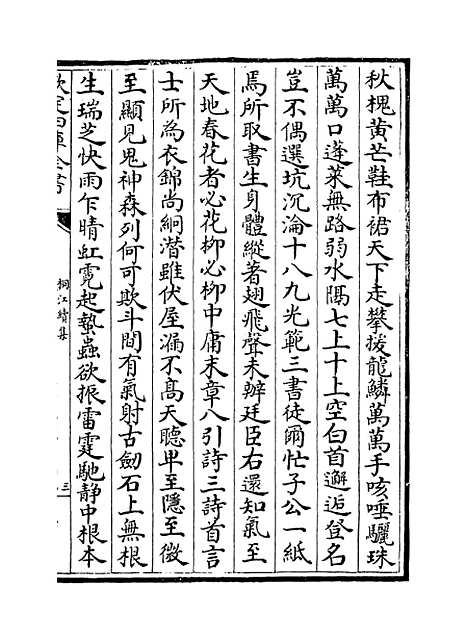 秋槐黄芒鞋布裙天下走攀拔龍鱗萬萬手咳唾驪珠
萬萬口蓬萊無路弱水隔七上十上空白首邂逅登名
豈不偶選坑沉淪十八九光範三書徒爾忙子公一紙
焉所取書生身體縱著翅飛聲未辦廷臣右還知氣至
天地春花者必花柳必柳中庸末章八引詩三詩首言
士所為衣錦尚絅潜雖伏屋漏不髙天聽卑至隱至微
至顯見鬼神森列何可欺斗間有氣射古劒石上無根
生瑞芝快雨乍晴虹霓起蟄蟲欲振雷霆馳静中根本
欽定四庫全書
桐江續集
三